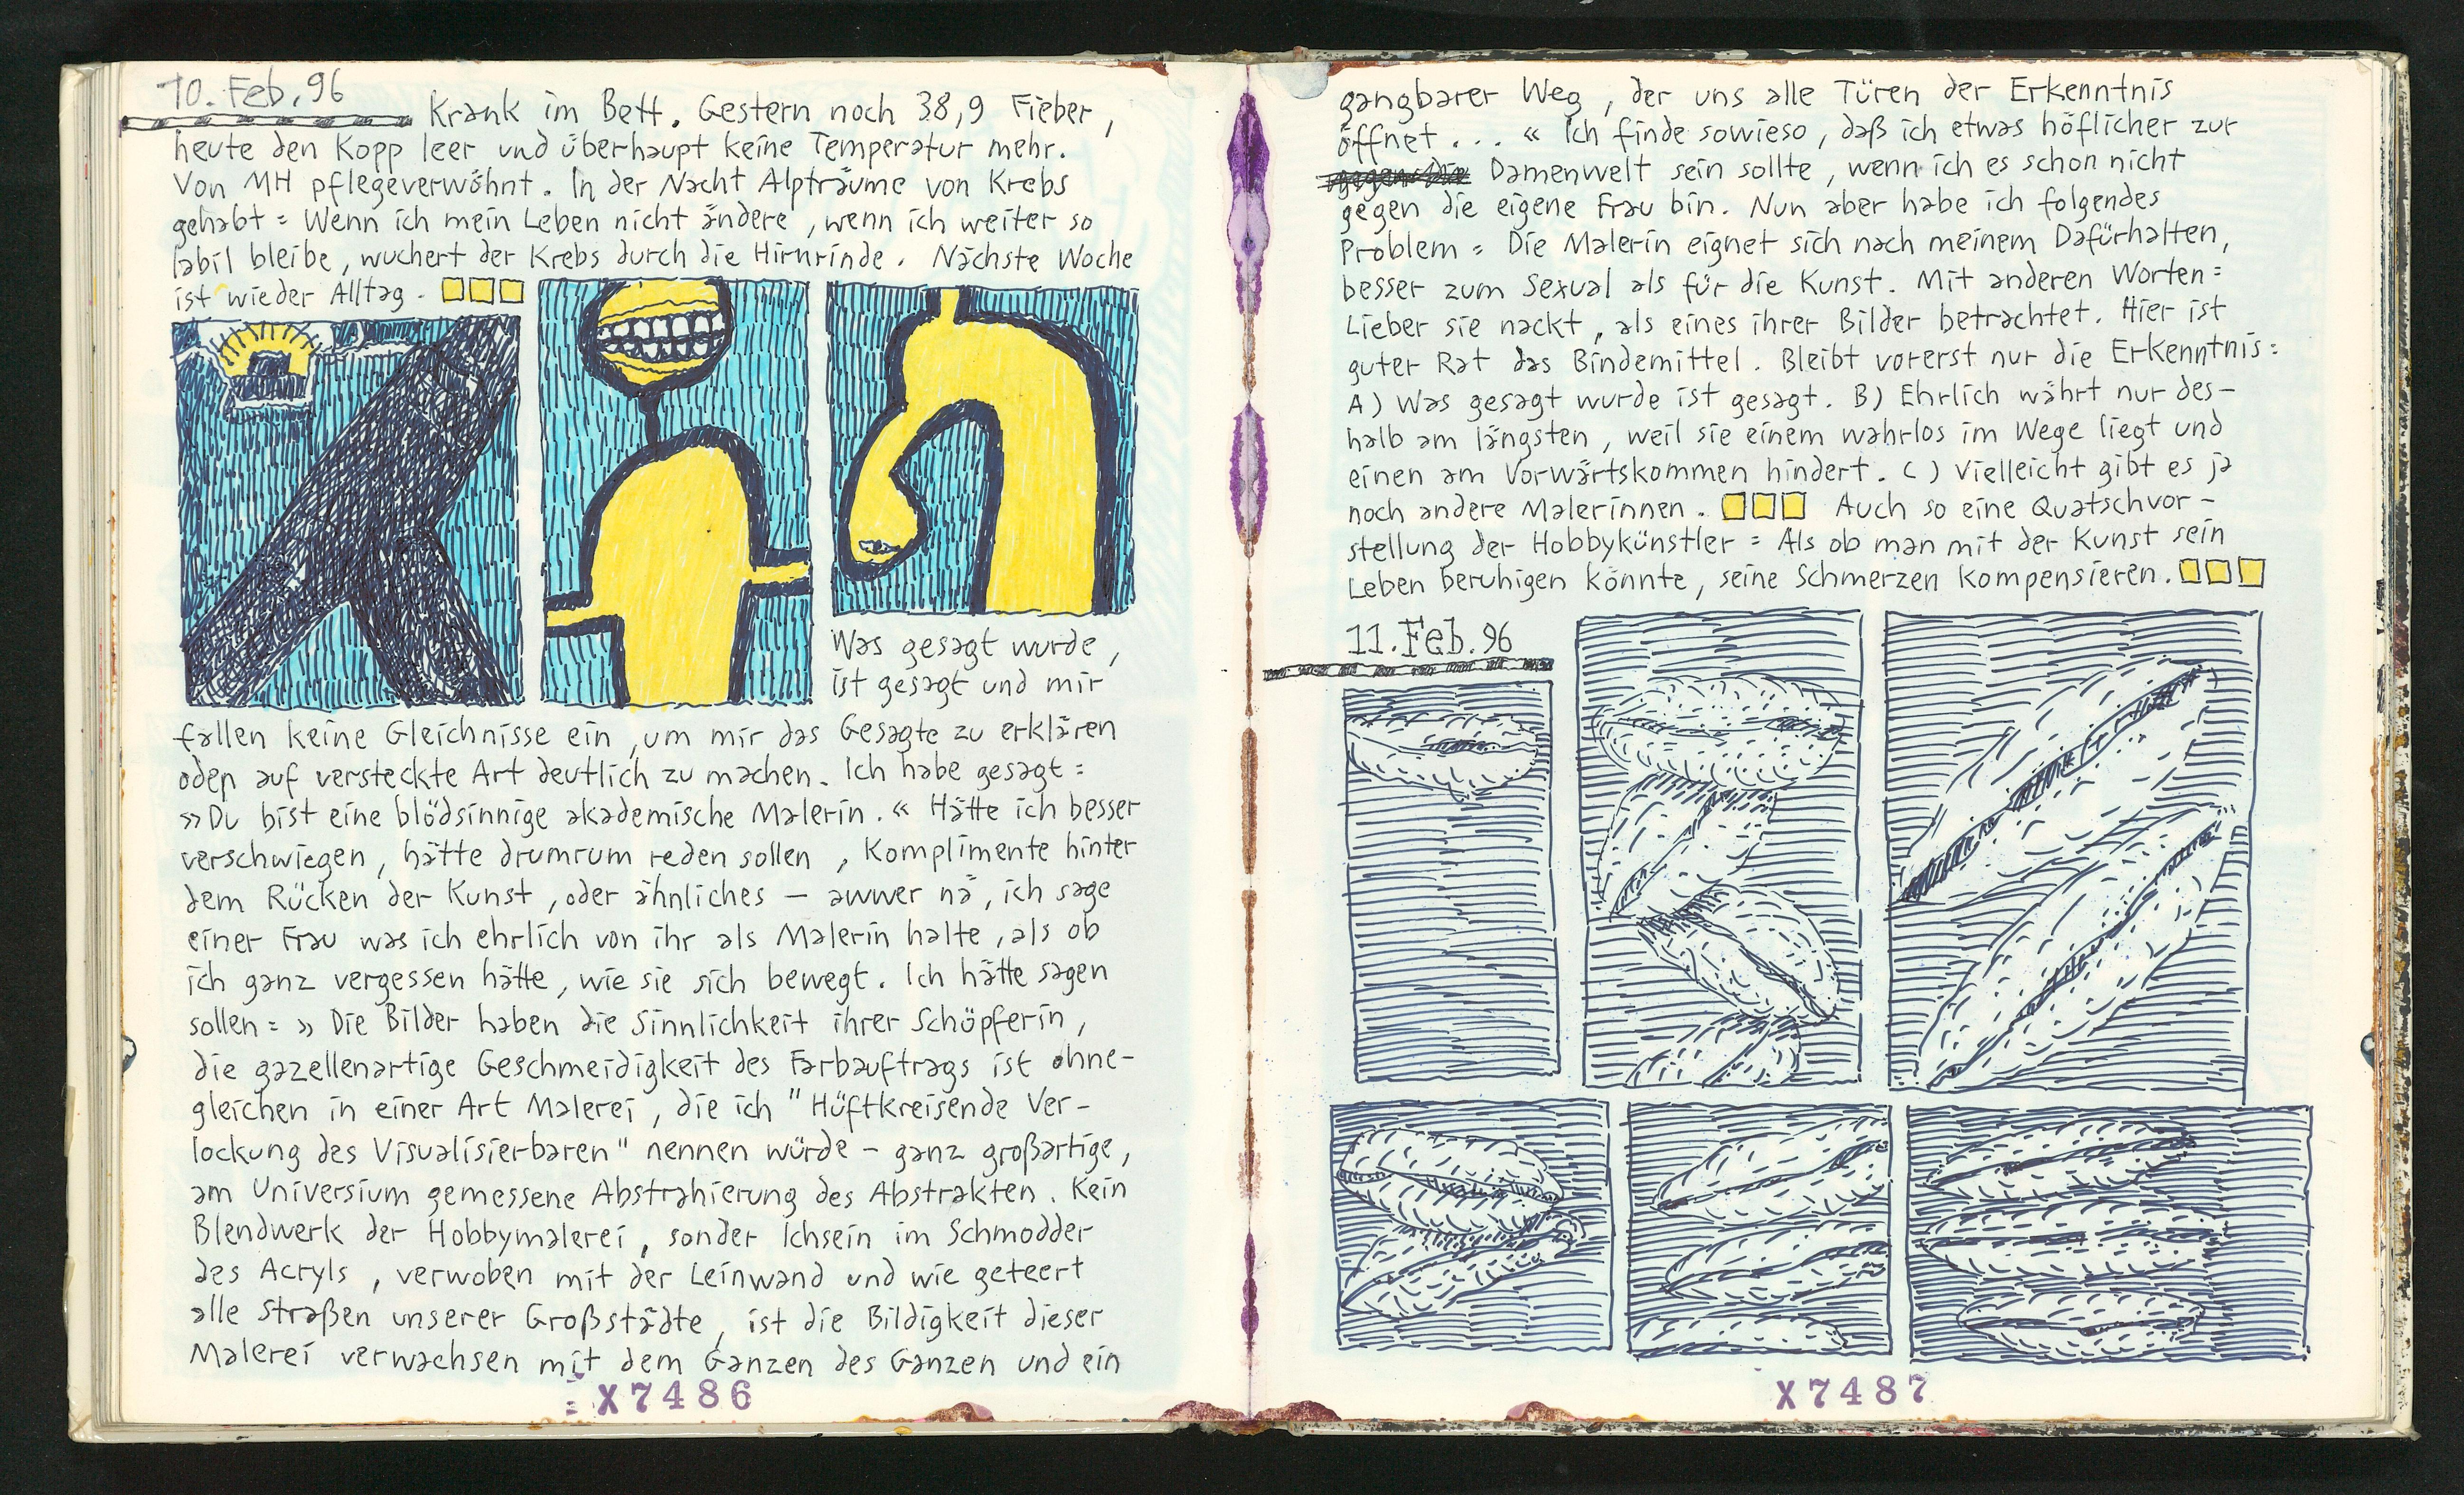 10. Feb. 96
Krank im Bett. Gestern noch 38,9 Fieber,
heute den Kopp leer und überhaupt keine Temperatur mehr.
Von MH pflegeverwöhnt. In der Nacht Alpträume von Krebs
gehabt = Wenn ich mein Leben nicht ändere, wenn ich weiter so
labil bleibe, wuchert der Krebs durch die Hirnrinde. Nächste Woche
ist wieder Alltag.
Was gesagt wurde,
ist gesagt und mir
fallen keine Gleichnisse ein, um mir das Gesagte zu erklären
oder auf versteckte Art deutlich zu machen. Ich habe gesagt =
»Du bist eine blödsinnige akademische Malerin.« Hätte ich besser
verschwiegen, hätte drumrum reden sollen, Komplimente hinter
dem Rücken der Kunst, oder ähnliches — awwer nä, ich sage
einer Frau was ich ehrlich von ihr als Malerin halte, als ob
ich ganz vergessen hätte, wie sie sich bewegt. Ich hätte sagen
sollen = » Die Bilder haben die Sinnlichkeit ihrer Schöpferin,
die gazellenartige Geschmeidigkeit des Farbauftrags ist ohne-
gleichen in einer Art Malerei, die ich "Hüftkreisende Ver-
lockung des Visualisierbaren" nennen würde – ganz großartige,
am Universium gemessene Abstrahierung des Abstrakten. Kein
Blendwerk der Hobbymalerei, sonder Ichsein im Schmodder
des Acryls, verwoben mit der Leinwand und wie geteert
alle Straßen unserer Großstädte, ist die Bildigkeit dieser
Malerei verwachsen mit dem Ganzen des Ganzen und ein
= X7486
gangbarer Weg, der uns alle Türen der Erkenntnis
öffnet ... « Ich finde sowieso, daß ich etwas höflicher zur
Damenwelt sein sollte, wenn ich es schon nicht
gegen die eigene Frau bin. Nun aber habe ich folgendes
Problem = Die Malerin eignet sich nach meinem Dafürhalten,
besser zum Sexual als für die Kunst. Mit anderen Worten =
Lieber sie nackt, als eines ihrer Bilder betrachtet. Hier ist
guter Rat das Bindemittel. Bleibt vorerst nur die Erkenntnis =
A) Was gesagt wurde ist gesagt. B) Ehrlich währt nur des-
halb am längsten, weil sie einem wahrlos im Wege liegt und
einen am Vorwärtskommen hindert. C) Vielleicht gibt es ja
noch andere Malerinnen. Auch so eine Quatschvor-
stellung der Hobbykünstler = Als ob man mit der Kunst sein
Leben beruhigen könnte, seine Schmerzen kompensieren.
11. Feb. 96
X7487